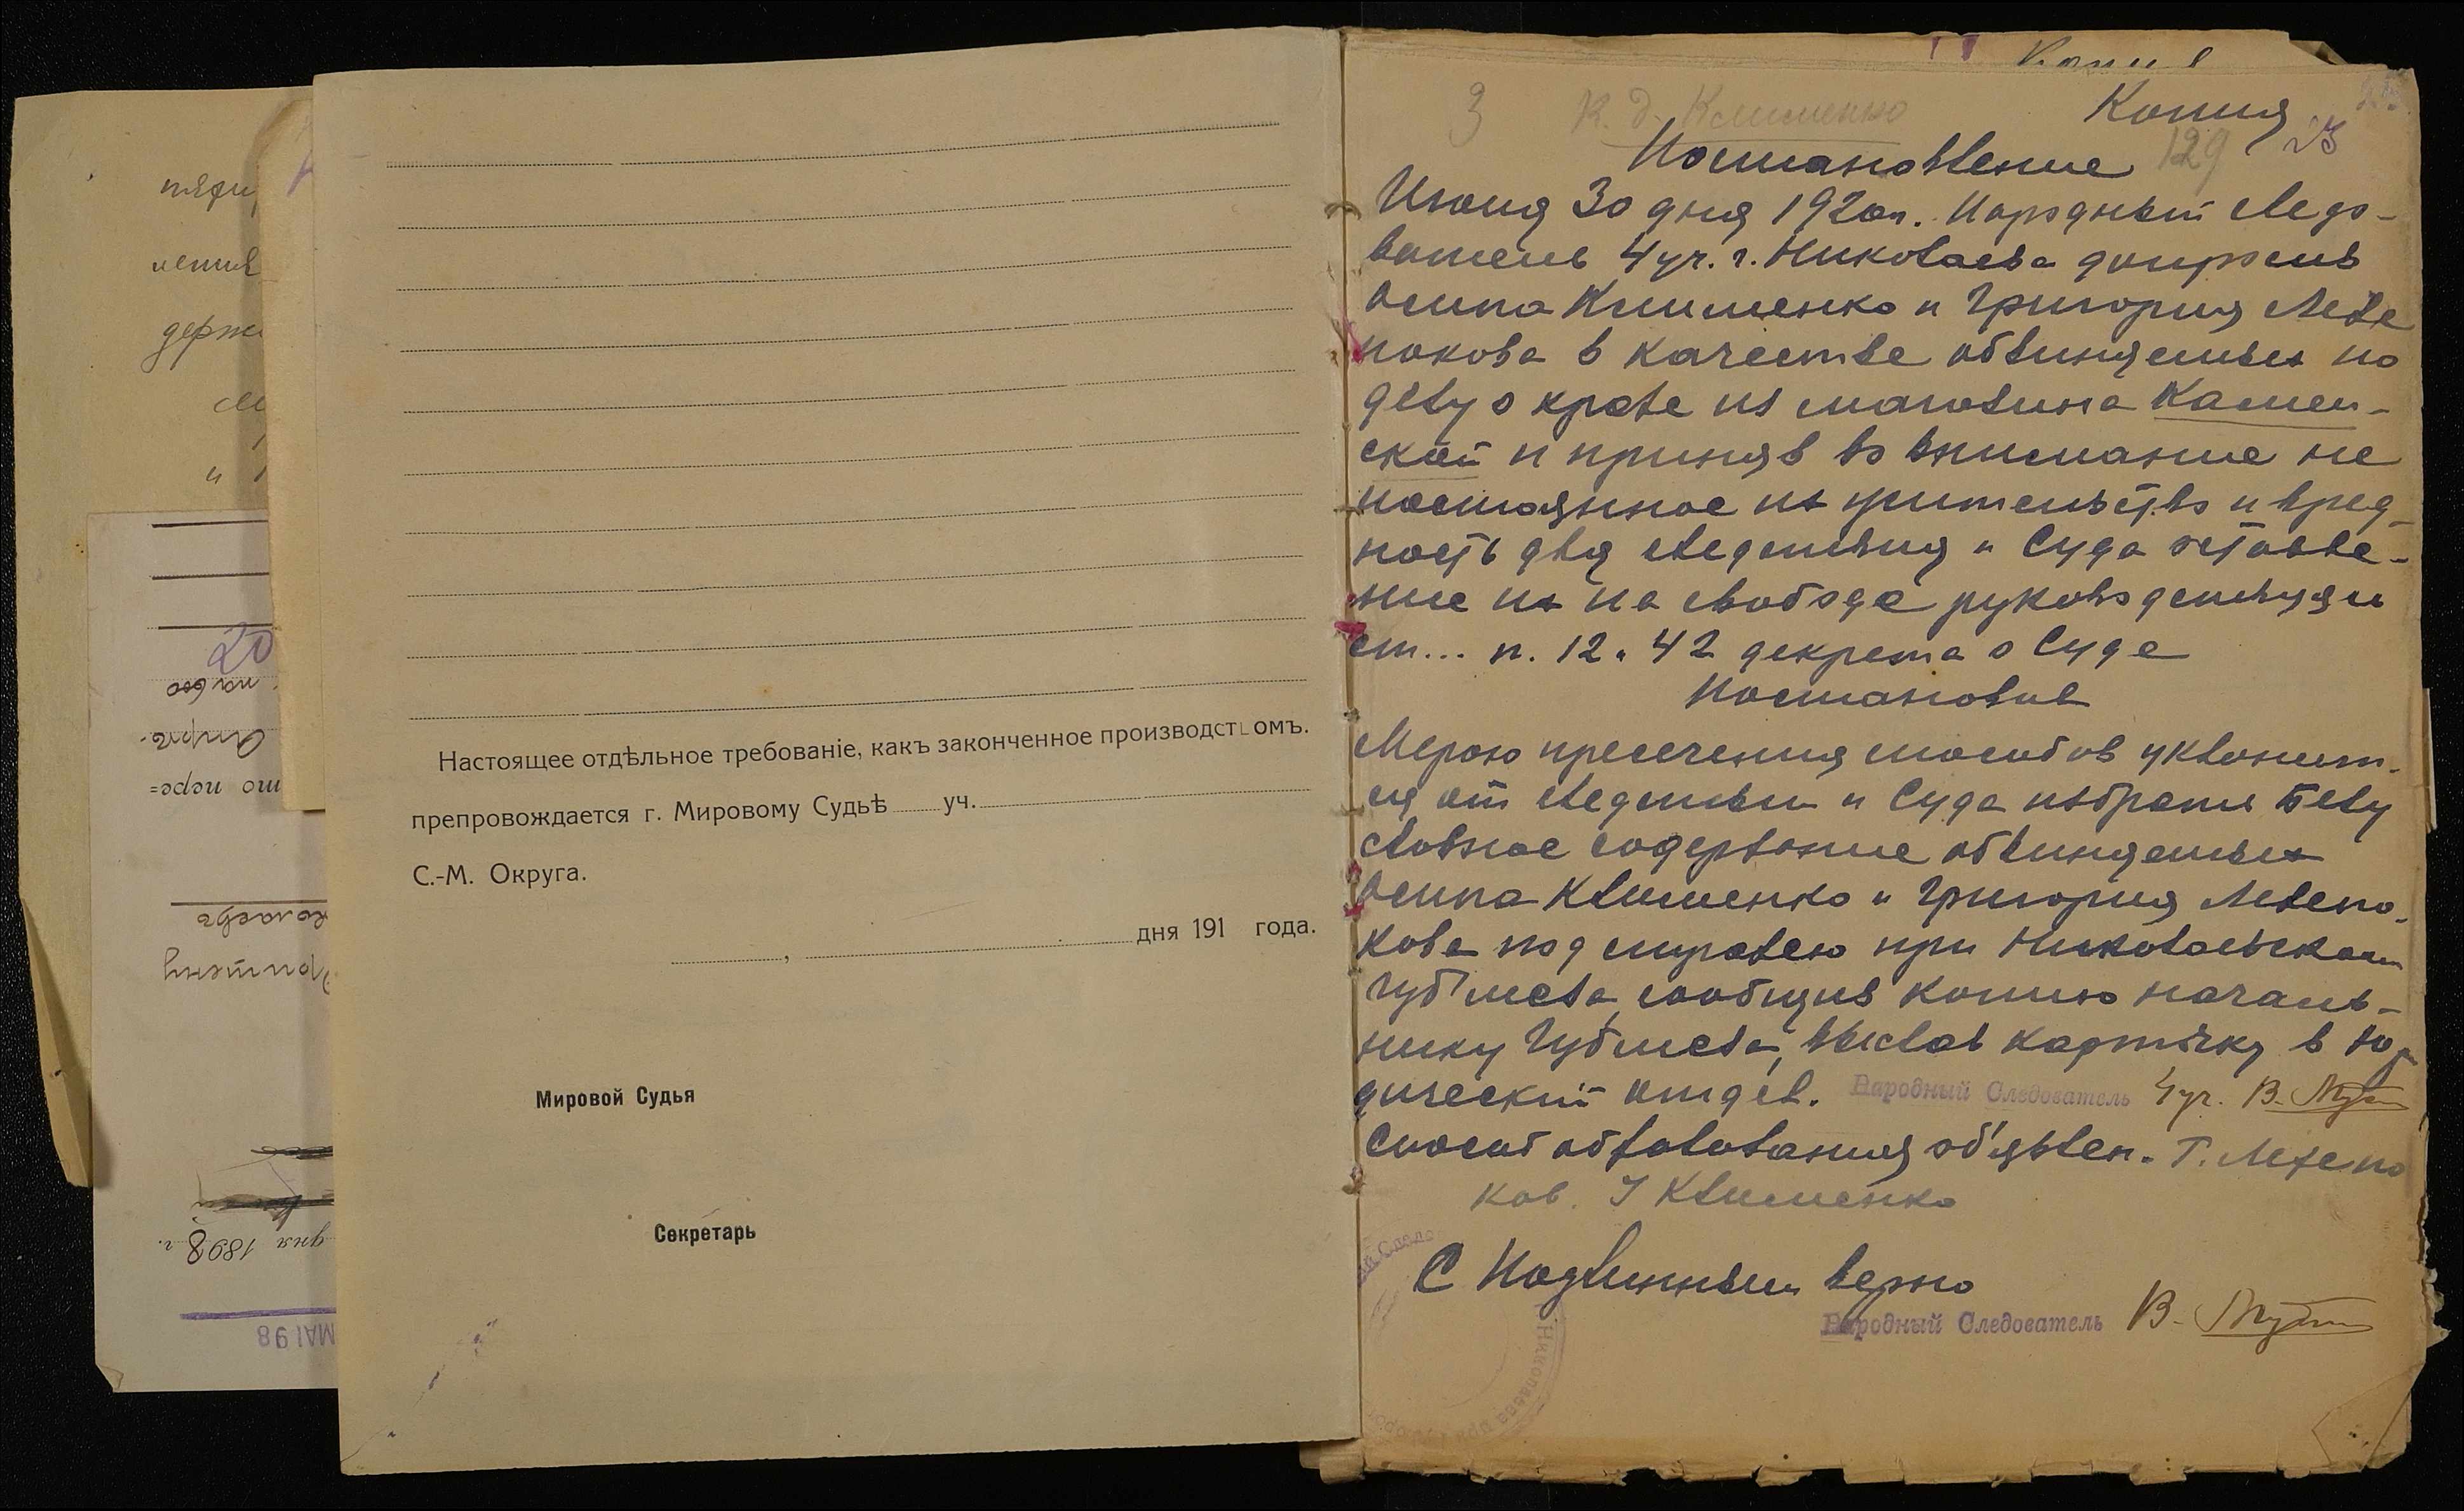 пяти
ления
держ
и
20
на 600
Апрѣ-
то пере=
колаевъ
дня 1898 г.
MAI 98
Настоящее отдѣльное требованіе, какъ законченное производствомъ.
препровождается г. Мировому Судьѣ уч.
С.-М. Округа.
дня 191 года.
Мировой Судья
Секретарь
Копия
3 К. д. Клименко Копия
Постановление 129 23
Июня 30 дня 1920 г. Народный следо-
ватель 4 уч. г. Николаева допросив
Осипа Клименко и Григория Леле
покова в качестве обвиняемых по
делу о краже из магазина Камен-
ской и приняв во внимание не
постоянное их жительство и вред-
ность для следствия и Суда оставле-
ние их на свободе руководствуясь
ст... п. 12 и 42 декрета о Суде
Постановил
Мерою пресечения способов уклонит-
ся от следствия и Суда избрать безу
словное содержание обвиняемых
Осипа Клименко и Григория
кова под стражею при Николаевском
Губ'исда, сообщив копию началь-
нику выслав карточку в Юри
дический отдел. Народный Следователь 4 уч. В.
Способ обжалования об'явлен. Г.
ков. І Клименко
С Подлинным верно
Народный Следователь В.
Николаева